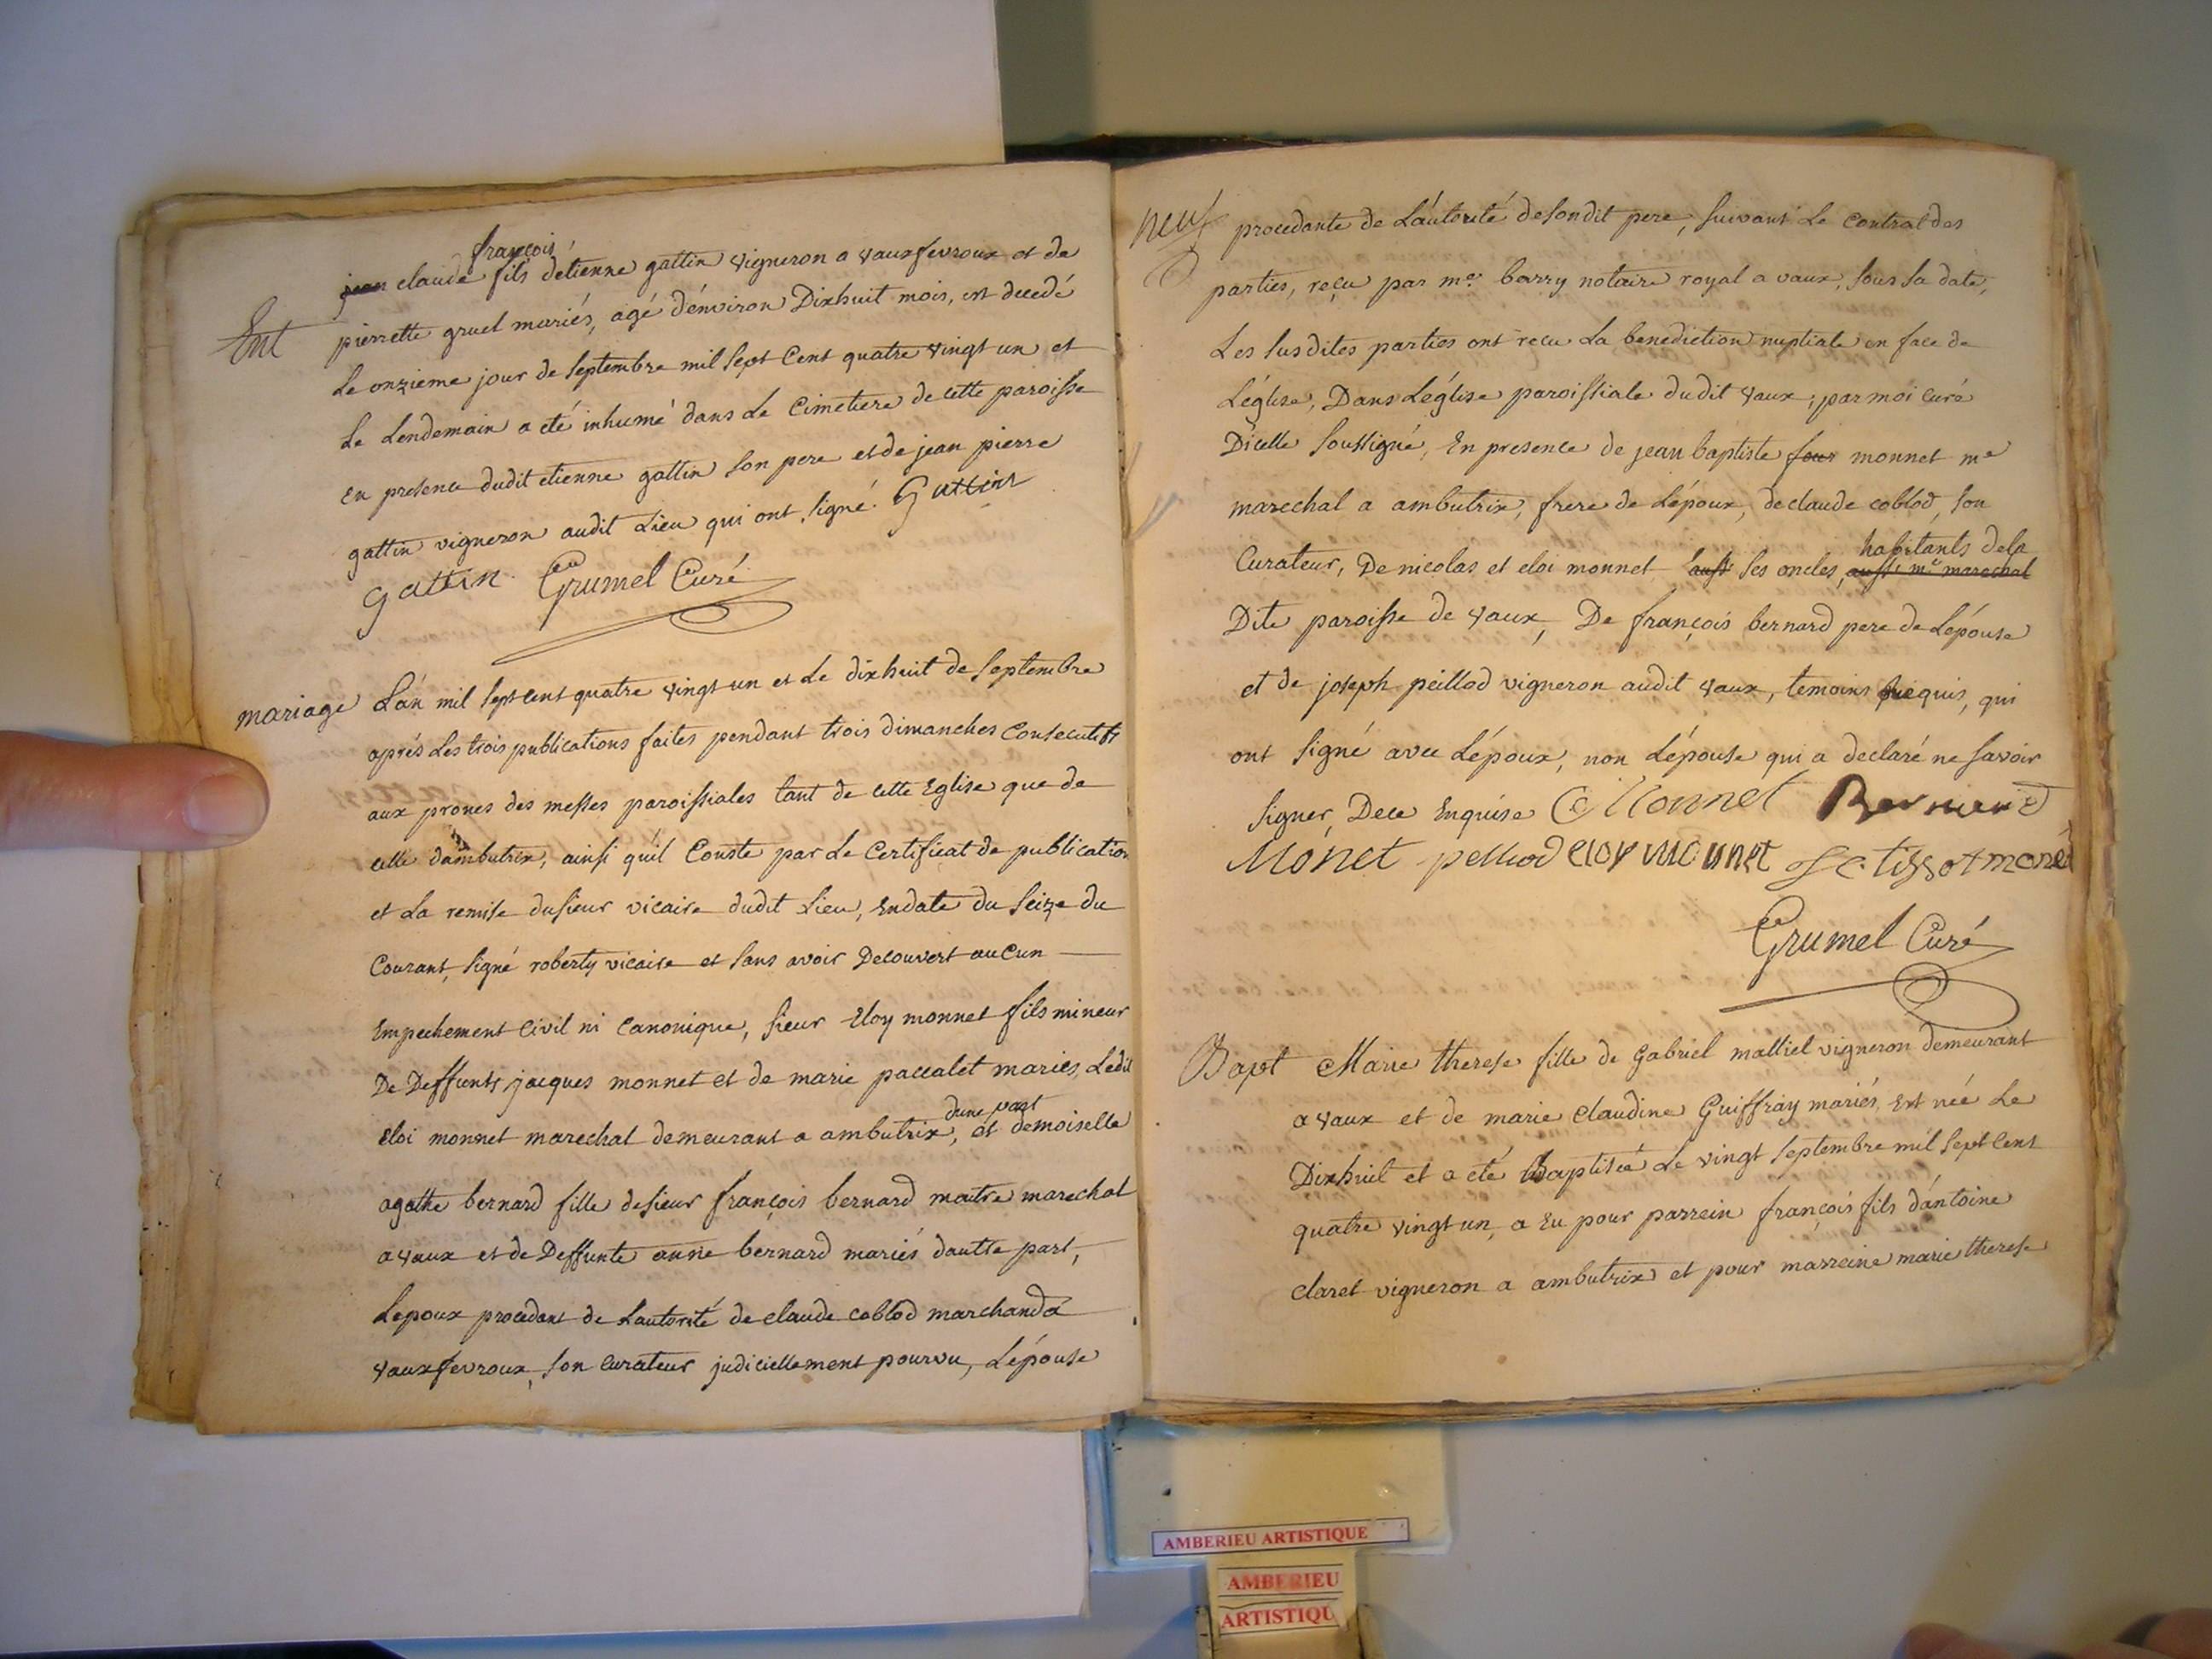 françois
jean claude fils d'étienne gattin vigneron a vauxfevroux et de
Ent pierrette gruel mariés, agé d'énviron Dixhuit mois, est decedé
Le onzieme jour de septembre mil sept Cent quatre vingt un et
Le Lendemain a eté inhumé dans Le Cimetiere de cette paroisse
En presence dudit etienne gattin son pere et de jean pierre
gattin vigneron audit Lieu qui ont signé. Gattin
gattin Grumel Curé
mariage L'an mil sept cent quatre vingt un et Le dixhuit de septembre
aprés Les trois publications faites pendant trois dimanches Consecutifs
aux prones des messes paroissiales tant de cette Eglise que de
celle dambutrix, ainsi qu'il Conste par Le Certificat de publication
et La remise du sieur vicaire dudit Lieu, En date du seize du
Courant, signé roberty vicaire et sans avoir Decouvert aucun
Empechement Civil ni Canonique, sieur Eloy monnet fils mineur
De Deffunts jacques monnet et de marie paccalet mariés, Ledit
dune part
eloi monnet marechal demeurant a ambutrix, et demoiselle
agathe bernard fille de sieur françois bernard maitre marechal
a vaux et de Deffunte anne bernard mariés dautte part,
Lepoux procedant de Lautorité de claude coblod marchand a
vauxfevroux, son Curateur judiciellement pourvu, L'épouse
neuf procedante de L'autorité de son dit pere, suivant Le Contrat des
parties, reçu par me barry notaire royal a vaux, sous sa date,
Les susdites parties ont reçu La benediction nuptiale en face de
L'église, Dans L'église paroissiale dudit vaux, par moi curé
Dicelle soussigné, En presence de jean baptiste four monnet me
marechal a ambutrix, frere de L'époux, de claude coblod, son
habitants dela
Curateur, De nicolas et eloi monnet aussi ses oncles, aussi me marechal
Dite paroisse de vaux, De françois bernard pere de L'épouse
et de joseph peillod vigneron audit vaux, temoins requis, qui
ont signé avec L'époux, non L'épouse qui a declaré ne savoir
signer, De ce Enquise E Monnet Bernard
Monet pellod eloy monnet tissot moned
Grumel Curé
Bapt Marie therese fille de Gabriel malliel vigneron demeurant
a vaux et de marie claudine Guiffray mariés, Est née Le
Dixhuit et a eté Baptiseé Le vingt septembre mil sept Cent
quatre vingt un, a Eu pour parrein françois fils d'antoine
claret vigneron a ambutrix et pour marreine marie therese
AMBERIEU ARTISTIQUE
AMBERIEU
ARTISTIQU